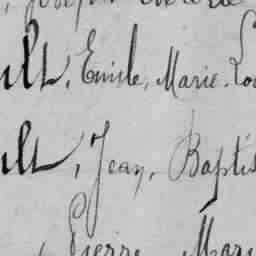 Joseph
ult, Emile, Marie, Lo
ult, Jean, Baptis
, Pierre, Mari